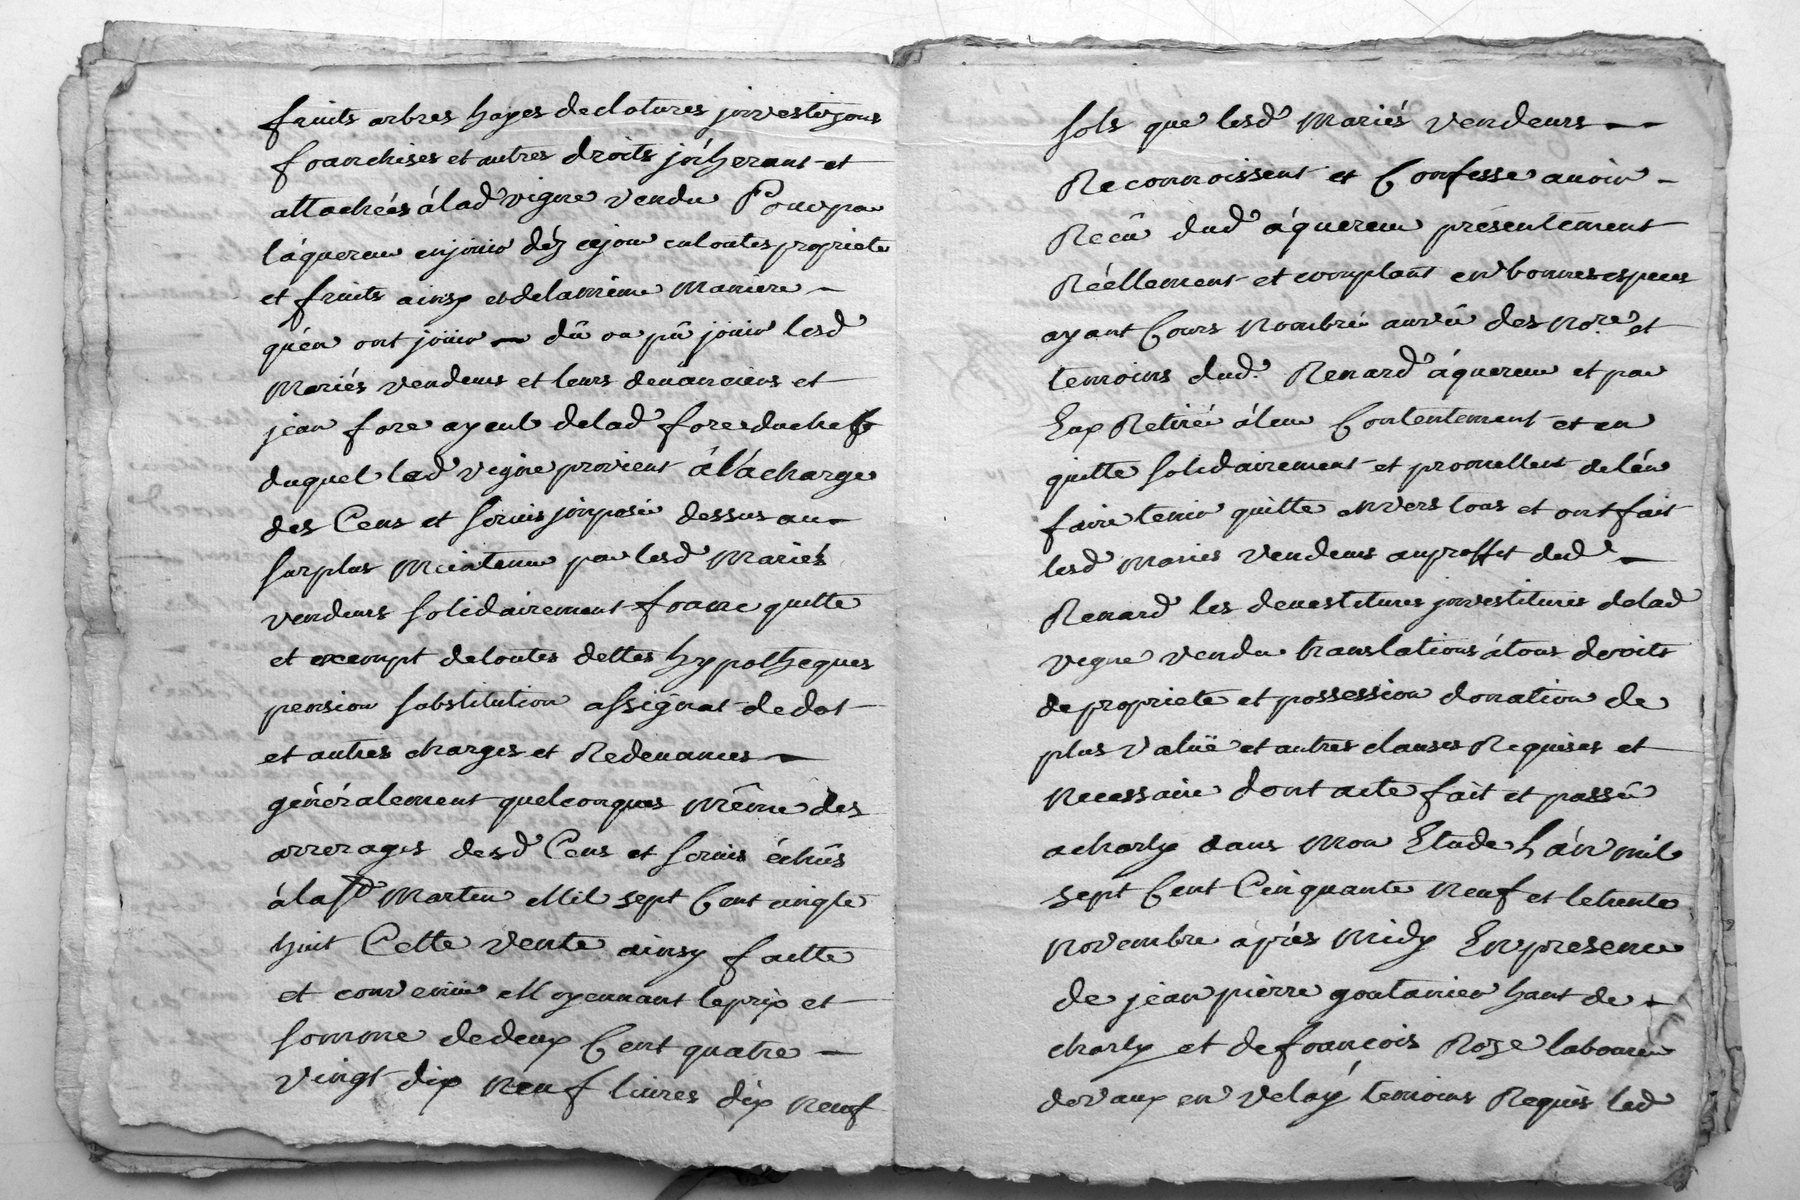 fruits arbres hayes declotures jnvestizons
franchises et autres droits jnherant et
attachés á lad vigne vendu Pour par
láquereur enjouir déz cejour entoutes propriete
et fruits ainsy et delamême Maniere
quén ont joüir dû ou pû jouir lesd
Mariés vendeurs et leurs devanciers et
jean fore ayeul delad fore duchef
duquel lad vigne provient á lá charge
des Cens et servis jmposé dessus au
surplus Maintenu par lesd Mariés
vendeurs solidairement franc quitte
et exempt detoutes dettes hypotheques
pension substitution assignat dedot
et autres charges et Redevances
généralement quelconques Même des
arrerages desd Cens et servis échûs
á la St Martin Mil sept Cent vingte
huit Cette vente ainsy faitte
et convenüe Moyennant leprix et
somme dedeux Cent quatre
vingt dix Neuf livres dix neuf
sols que lesd Mariés vendeurs
Reconnoissent et Confesse avoir
Reçû dud áquereur présentement
Réellement et comptant en bonnes especes
ayant Cours Nombré auvû des No.re et
temoins dud. Renard áquereur et par
Eux Retiré áleur Contentement et en
quitte solidairement et promettent delén
faire tenir quitte envers tous et ont fait
lesd Mariés vendeurs auproffit dud
Renard les devestitures jnvestitures delad
vigne vendu translations átous droits
de proprieté et possession donation de
plus valüe et autres clauses Requises et
Necessaire dont acte fait et passé
a charly dans Mon Etude Lán mil
sept Cent Cinquante Neuf et letrente
Novembre áprés Midy En presence
de jean pierre goutanier hant de
charly et de francois Roze laboureur
de vaux en velay temoins Requis led